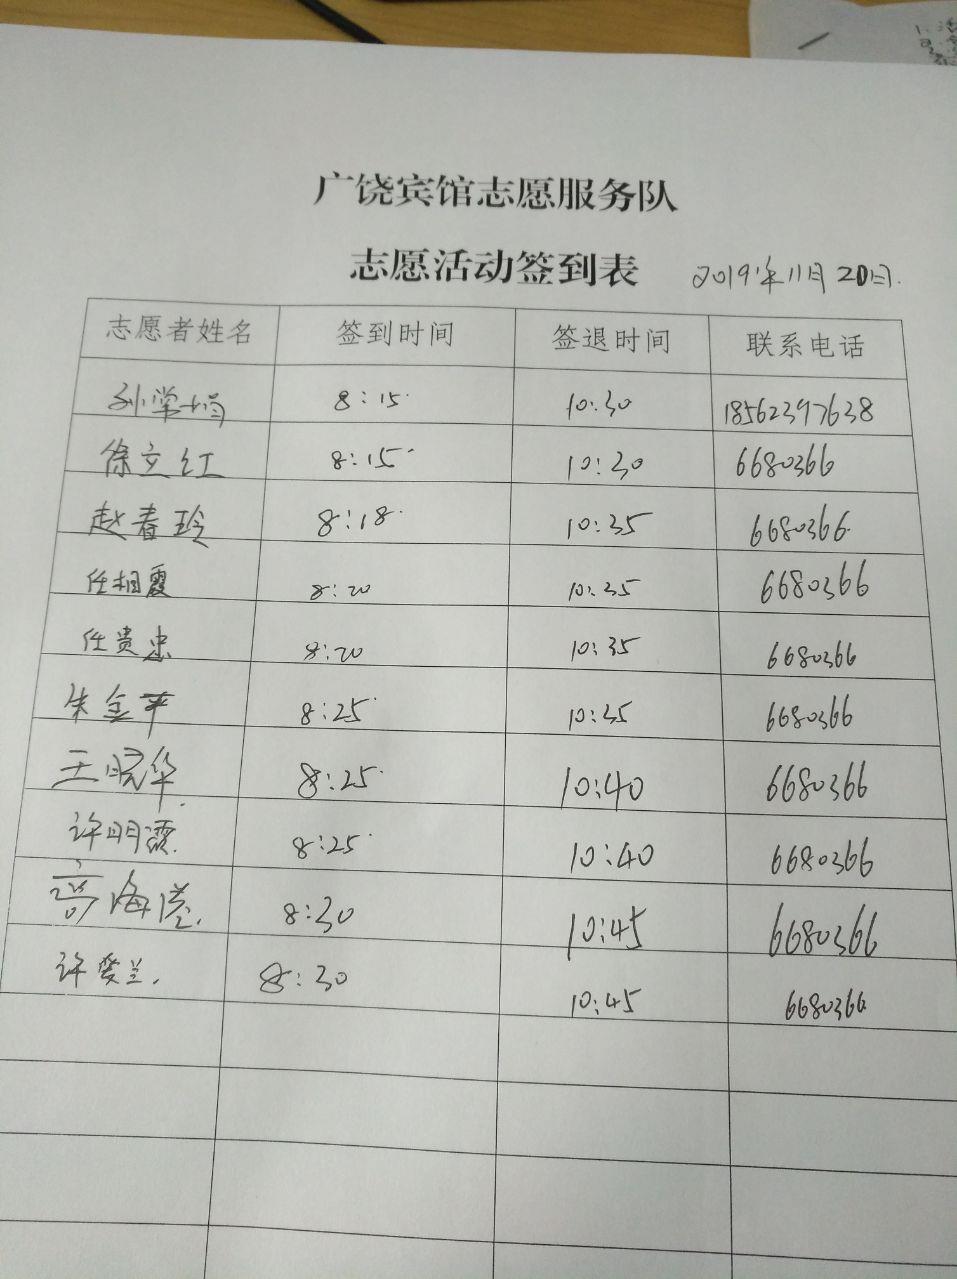 广饶宾馆志愿服务队
志愿活动签到表 2019年11月20日.
志愿者姓名 签到时间 签退时间 联系电话
孙学娟 8:15 10:30 18562397638
徐立红 8:15 10:30 6680366
赵春玲 8:18 10:35 6680366
任相霞 8:20 10:35 6680366
任贵忠 8:20 10:35 6680366
朱金平 8:25 10:35 6680366
王晓华 8:25 10:40 6680366
许明霞 8:25 10:40 6680366
海滢 8:30 10:45 6680366
许爱兰 8:30 10:45 6680366